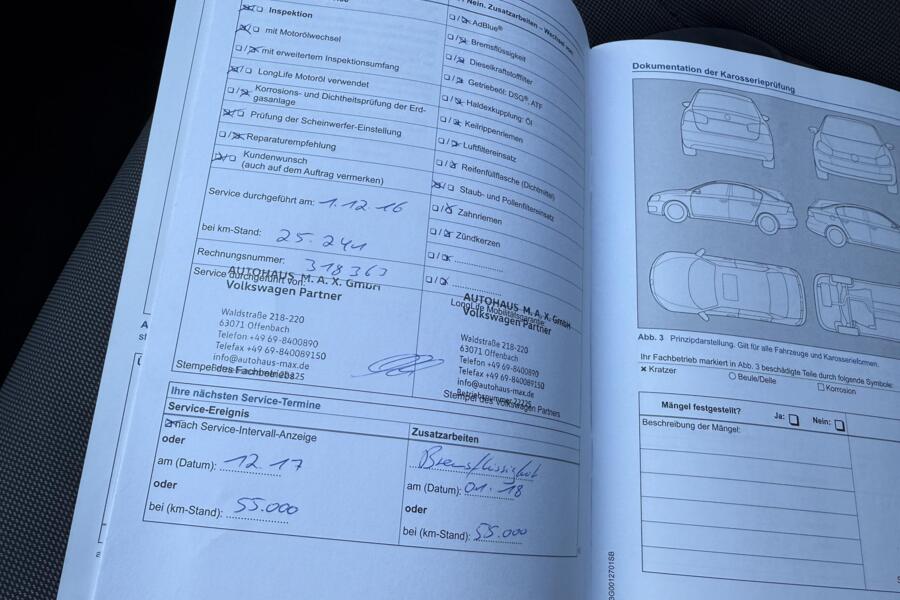 Inspektion
mit Motorölwechsel
mit erweitertem Inspektionsumfang
LongLife Motoröl verwendet
Korrosions- und Dichtheitsprüfung der Erd-
gasanlage
Prüfung der Scheinwerfer-Einstellung
Reparaturempfehlung
Kundenwunsch
(auch auf dem Auftrag vermerken)
Service durchgeführt am: 1.12.16
bei km-Stand: 25.241
Rechnungsnummer: 318363
Service durchgeführt von:
AUTOHAUS M. A. X. GmbH
Volkswagen Partner
Waldstraße 218-220
63071 Offenbach
Telefon +49 69-8400890
Telefax +49 69-840089150
info@autohaus-max.de
Stempel des Fachbetriebs
Nein. Zusatzarbeiten - Wechsel von:
AdBlue®
Bremsflüssigkeit
Dieselkraftstofffilter
Getriebeöl: DSG®, ATF
Haldexkupplung: Öl
Keilrippenriemen
Luftfiltereinsatz
Reifenfüllflasche (Dichtmittel)
Staub- und Pollenfiltereinsatz
Zahnriemen
Zündkerzen
LongLife Mobilitätsgarantie
AUTOHAUS M. A. X. GmbH
Volkswagen Partner
Waldstraße 218-220
63071 Offenbach
Telefon +49 69-8400890
Telefax +49 69-840089150
info@autohaus-max.de
Stempel des Volkswagen Partners
Ihre nächsten Service-Termine
Service-Ereignis
nach Service-Intervall-Anzeige
oder
am (Datum): 12.17
oder
bei (km-Stand): 55.000
Zusatzarbeiten
Bremsflüssigkeit
am (Datum): 01.18
oder
bei (km-Stand): 55.000
Dokumentation der Karosserieprüfung
Abb. 3 Prinzipdarstellung. Gilt für alle Fahrzeuge und Karosserieformen.
Ihr Fachbetrieb markiert in Abb. 3 beschädigte Teile durch folgende Symbole:
Kratzer
Beule/Delle
Korrosion
Mängel festgestellt? Ja: Nein:
Beschreibung der Mängel:
3G0012701SB